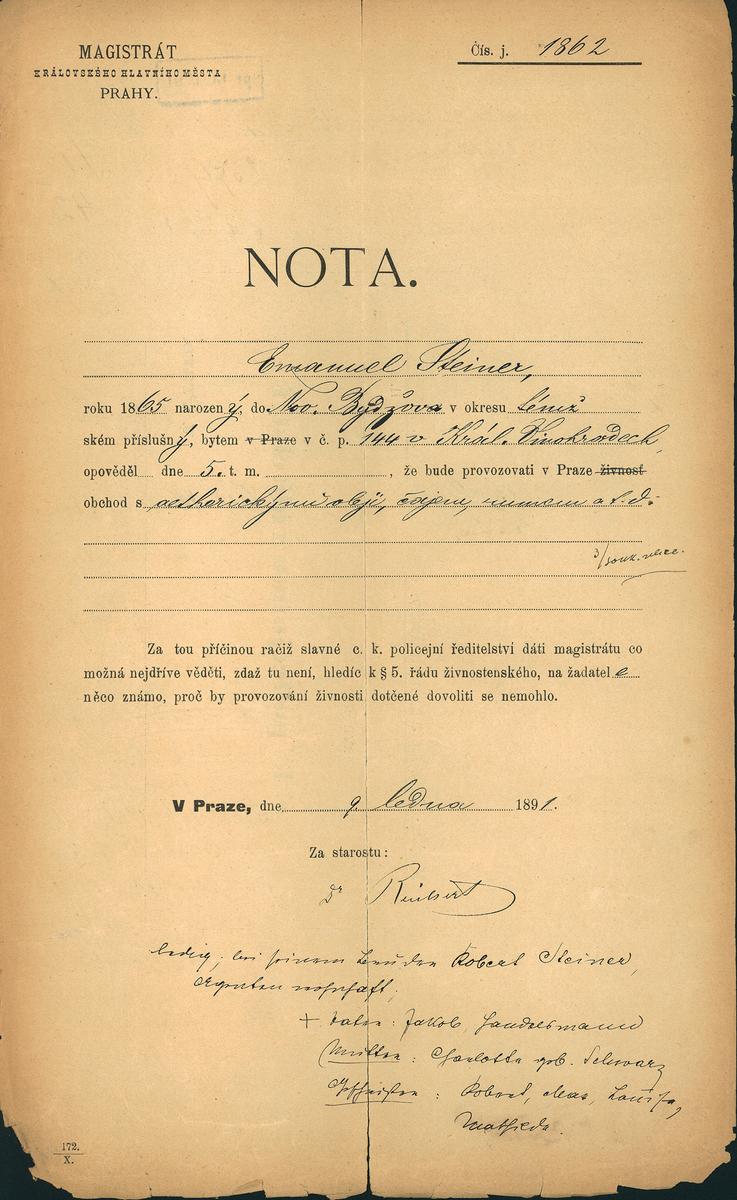 MAGISTRÁT
KRÁLOVSKÉHO HLAVNÍHO MĚSTA
PRAHY.
Čís. j. 1862
NOTA.
Emanuel Steiner,
roku 1865 narozený, do Nov. Bydžova v okresu témž
ském příslušný, bytem v Praze v č. p. 144 v Král. Vinohradech,
opověděl dne 5. t. m. , že bude provozovati v Praze živnosť
obchod s aetherickými oleji, čajem, rumem a t. d.
Za tou příčinou račiž slavné c. k. policejní ředitelství dáti magistrátu co
možná nejdříve věděti, zdaž tu není, hledíc k § 5. řádu živnostenského, na žadatele
něco známo, proč by provozování živnosti dotčené dovoliti se nemohlo.
V Praze, dne 9 ledna 1891.
Za starostu:
Dr
ledig, bei seinem Bruder Robert Steiner,
Agenten wohnhaft.
+ Vater: Jakob, Handelsmann
Mutter: Charlotte geb. Schwarz
Geschwister: Robert, Max, Louisa,
Mathilde.
172.
X.